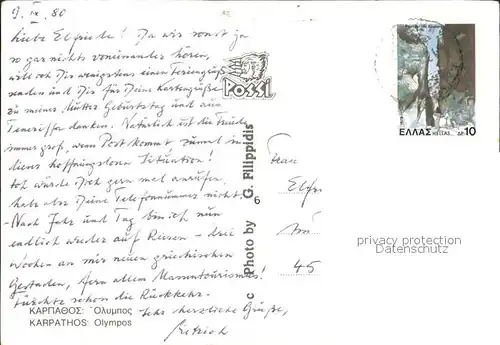 9. IX. 80
Liebe Elfriede! Da wir sonst ja
so gar nichts voneinander hören,
will ich Dir wenigstens einen Feriengruß
senden und Dir für Deine Kartengrüße
zu meiner Mutter Geburtstag und aus
Teneriffa danken. Natürlich ist die Freude
immer groß, wenn Post kommt, zumal in
dieser hoffnungslosen Situation!
Ich würde Dich gern mal anrufen,
habe aber Deine Telefonnummer nicht.
- Nach Jahr und Tag bin ich nun
endlich wieder auf Reisen - drei
Wochen an mir neuen griechischen
Gestaden, fern allem Massentourismus!
Fürchte schon die Rückkehr.
Sehr herzliche Grüße,
ΚΑΡΠΑΘΟΣ: Ὄλυμπος
KARPATHOS: Olympos
POSSI
c Photo by G. Filippidis
6
ΕΛΛΑΣ HELLAS ΔΡ 10
Frau
Elfri
45
privacy protection
Datenschutz